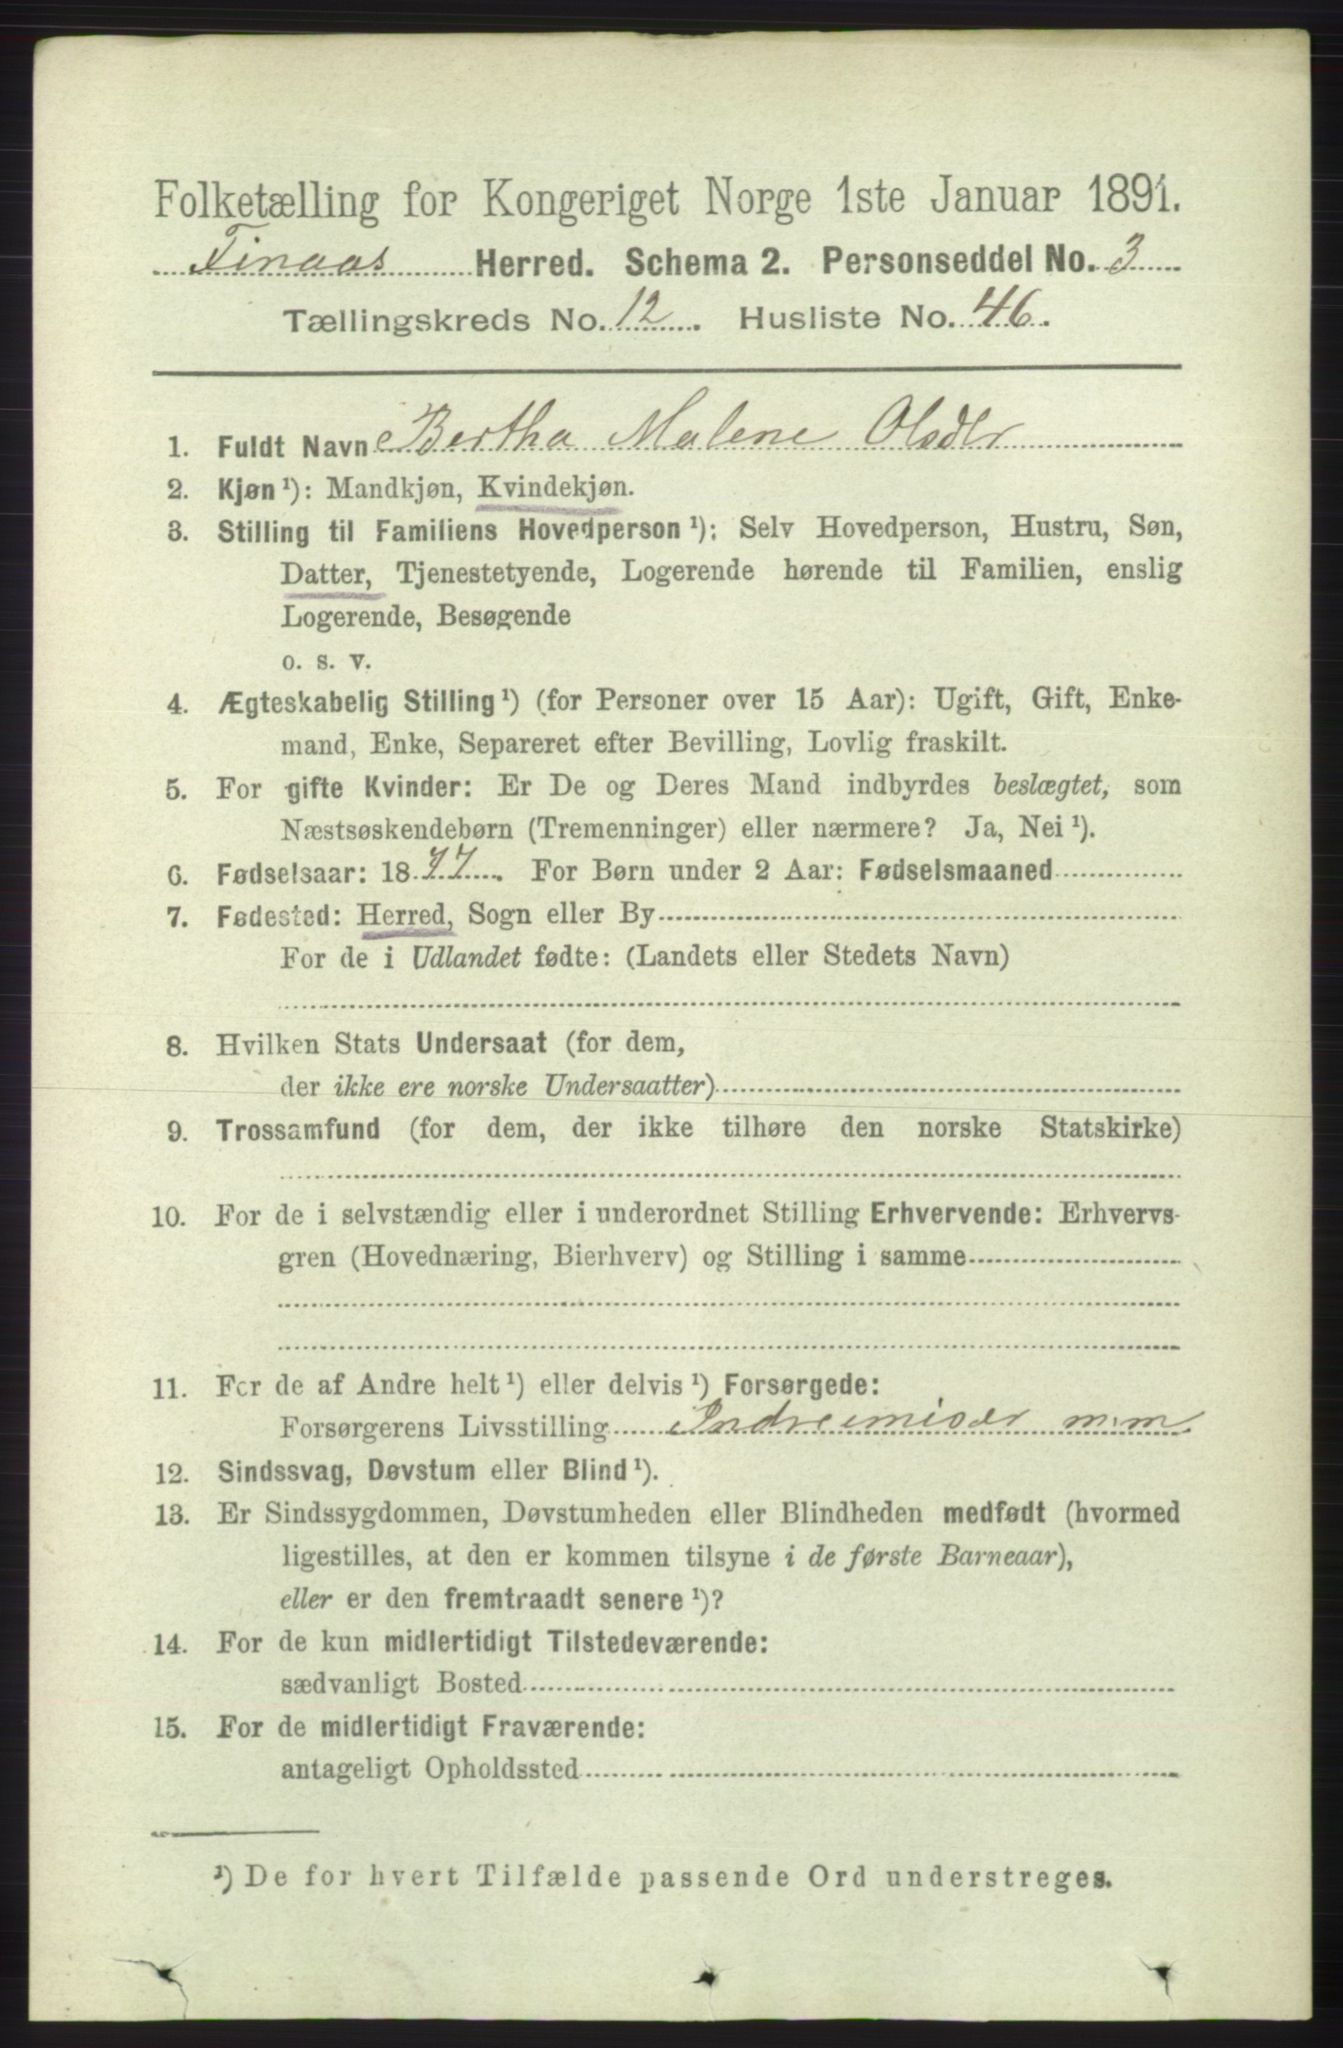 Folketælling for Kongeriget Norge 1ste Januar 1891.
Finaas Herred. Schema 2. Personseddel No. 3
Tællingskreds No. 12. Husliste No. 46.
1. Fuldt Navn Bertha Malene Olsdtr
2. Kjøn ¹): Mandkjøn, Kvindekjøn.
3. Stilling til Familiens Hovedperson ¹): Selv Hovedperson, Hustru, Søn,
Datter, Tjenestetyende, Logerende hørende til Familien, enslig
Logerende, Besøgende
o. s. v.
4. Ægteskabelig Stilling ¹) (for Personer over 15 Aar): Ugift, Gift, Enke-
mand, Enke, Separeret efter Bevilling, Lovlig fraskilt.
5. For gifte Kvinder: Er De og Deres Mand indbyrdes beslægtet, som
Næstsøskendebørn (Tremenninger) eller nærmere? Ja, Nei ¹).
6. Fødselsaar: 1877. For Børn under 2 Aar: Fødselsmaaned
7. Fødested: Herred, Sogn eller By
For de i Udlandet fødte: (Landets eller Stedets Navn)
8. Hvilken Stats Undersaat (for dem,
der ikke ere norske Undersaatter)
9. Trossamfund (for dem, der ikke tilhøre den norske Statskirke)
10. For de i selvstændig eller i underordnet Stilling Erhvervende: Erhvervs-
gren (Hovednæring, Bierhverv) og Stilling i samme
11. For de af Andre helt ¹) eller delvis ¹) Forsørgede:
Forsørgerens Livsstilling m.m
12. Sindssvag, Døvstum eller Blind ¹).
13. Er Sindssygdommen, Døvstumheden eller Blindheden medfødt (hvormed
ligestilles, at den er kommen tilsyne i de første Barneaar),
eller er den fremtraadt senere ¹)?
14. For de kun midlertidigt Tilstedeværende:
sædvanligt Bosted
15. For de midlertidigt Fraværende:
antageligt Opholdssted
¹) De for hvert Tilfælde passende Ord understreges.